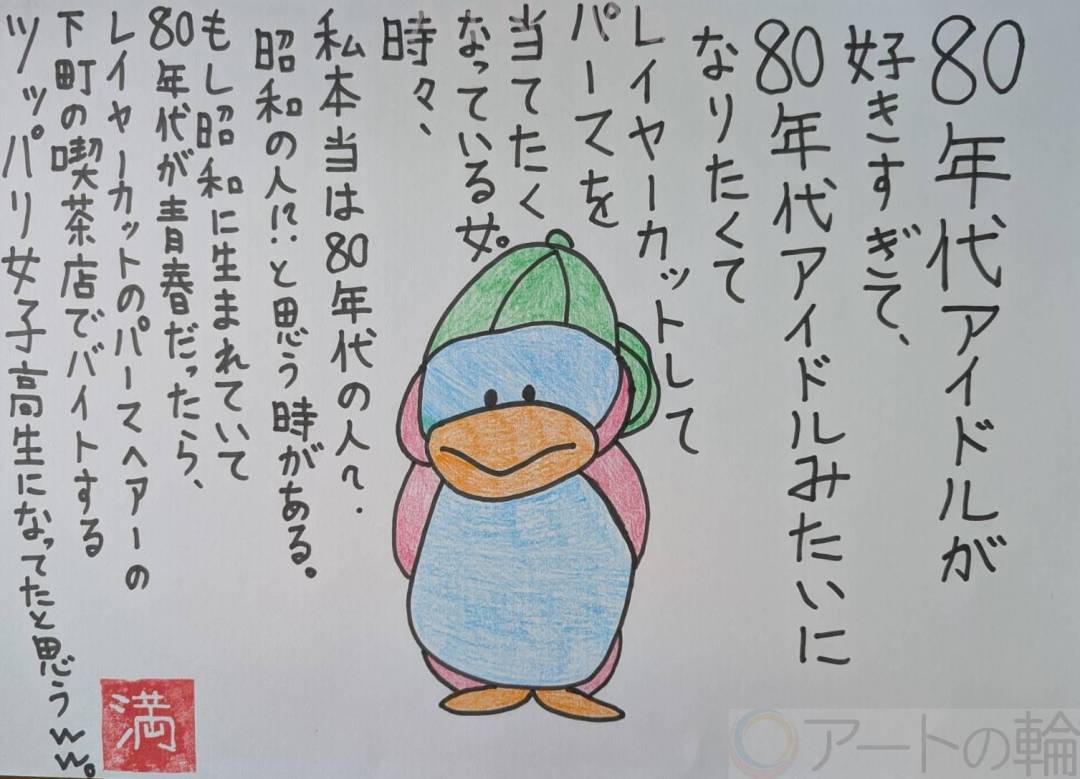 80年代アイドルが
好きすぎて、
80年代アイドルみたいに
なりたくて
レイヤーカットして
パーマを
当てたく
なっている女。
時々、
私本当は80年代の人?.
昭和の人!?と思う時がある。
もし昭和に生まれていて
80年代が青春だったら、
レイヤーカットのパーマヘアーの
下町の喫茶店でバイトする
ツッパリ女子高生になってたと思うww。
満
アートの輪